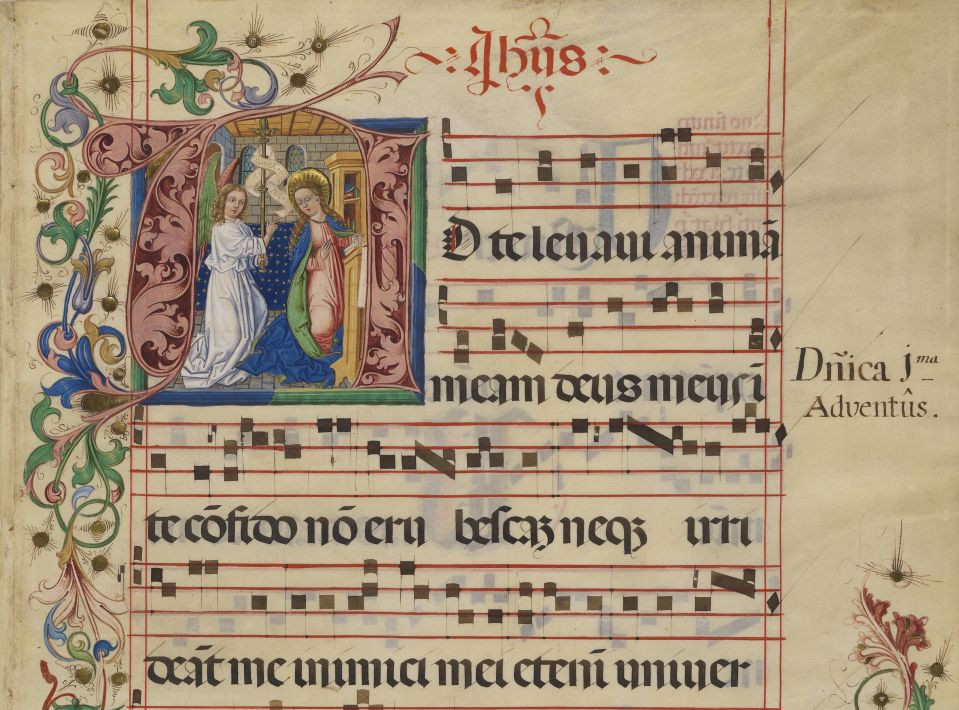 Jhūs
AD te levavi animā
meam deus meus ī
te cōfido nō eru bescaꝫ neqꝫ irri
deāt me inimici mei eteni univer
Dñica j.ma
Adventûs.